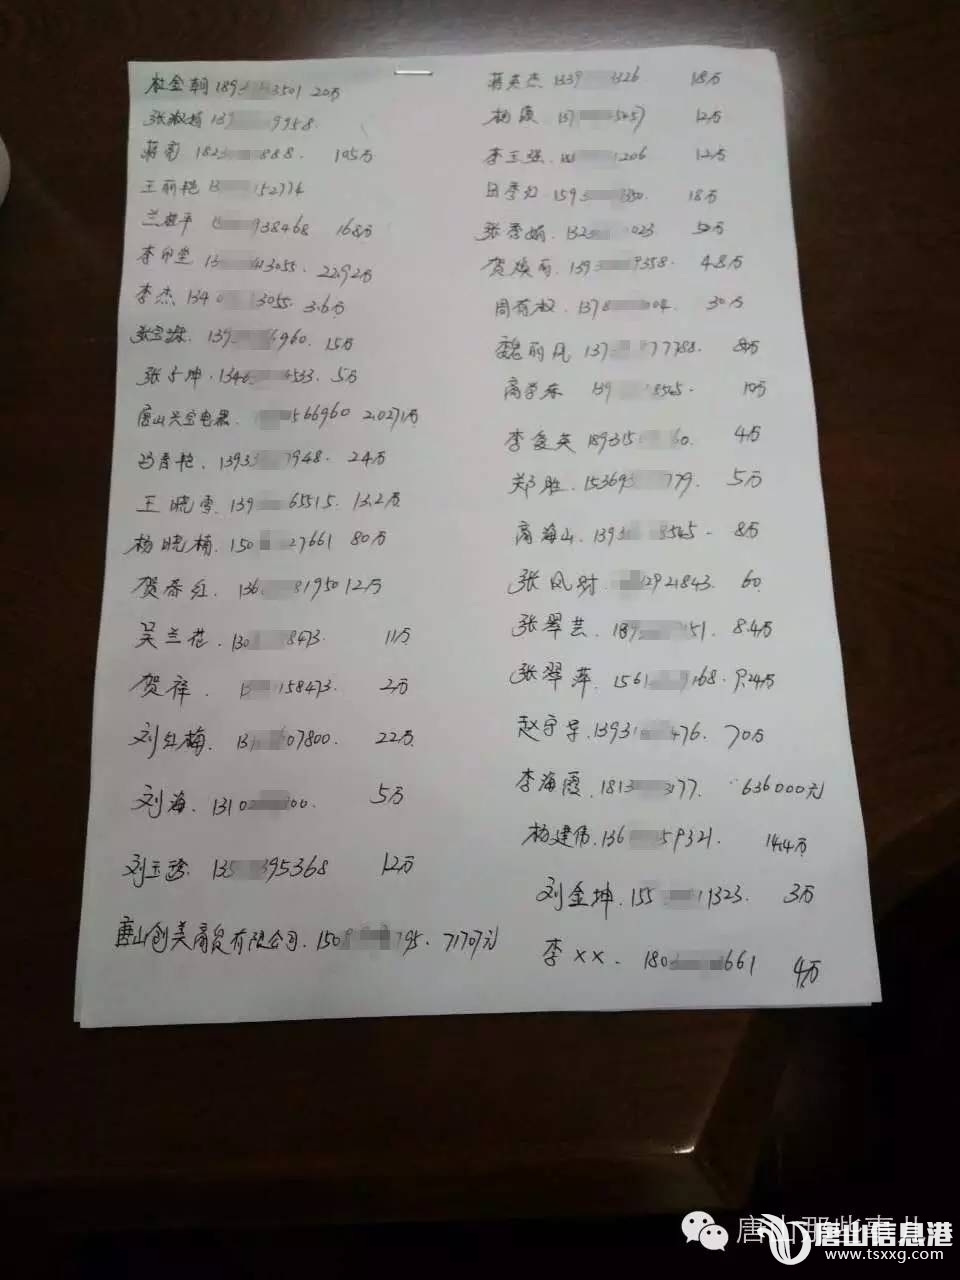 杜金朝 189 3501 20万
张淑 139 9958.
蒋 182 888. 105万
王丽艳 1 152774
兰 平 1 938468 168万
李印 13 3055. 22.92万
李杰 1340 3055. 3.6万
张 139 6960. 15万
张 坤. 1346 4533. 5万
唐山兴宝电器. 566960 2.0271万
冯春艳. 1393 7948. 24万
王晓雪. 139 65515. 13.2万
杨晓楠. 150 27661 80万
贺春红. 136 81950 12万
吴兰花. 130 8473. 11万
贺祥. 1 158473. 2万
刘红梅. 13 07800. 22万
刘海. 1310 00. 5万
刘玉珍. 135 395368 12万
唐山创美商贸有限公司. 150 795. 7170元
蒋英杰 1339 326 18万
杨 137 12万
李玉强. 1206 12万
吕季 159 350. 18万
张秀娟 132 023 5万
贺焕丽. 139 9358. 4.8万
周有 . 1378 004. 30万
魏丽凡 137 77788. 8万
高学东 139 8565. 10万
李复英 189315 60. 4万
郑胜. 153693 779. 5万
高海山. 139 8565. 8万
张凤 . 2921843. 60
张翠芸. 189 151. 8.4万
张翠萍. 1561 168. 9.24万
赵守 . 13931 476. 70万
李海霞. 1813 3177. 636000元
杨建伟. 136 59321. 14.4万
刘金坤. 155 11323. 3万
李××. 180 661 4万
唐山那些事儿
唐山信息港
www.tsxxg.com